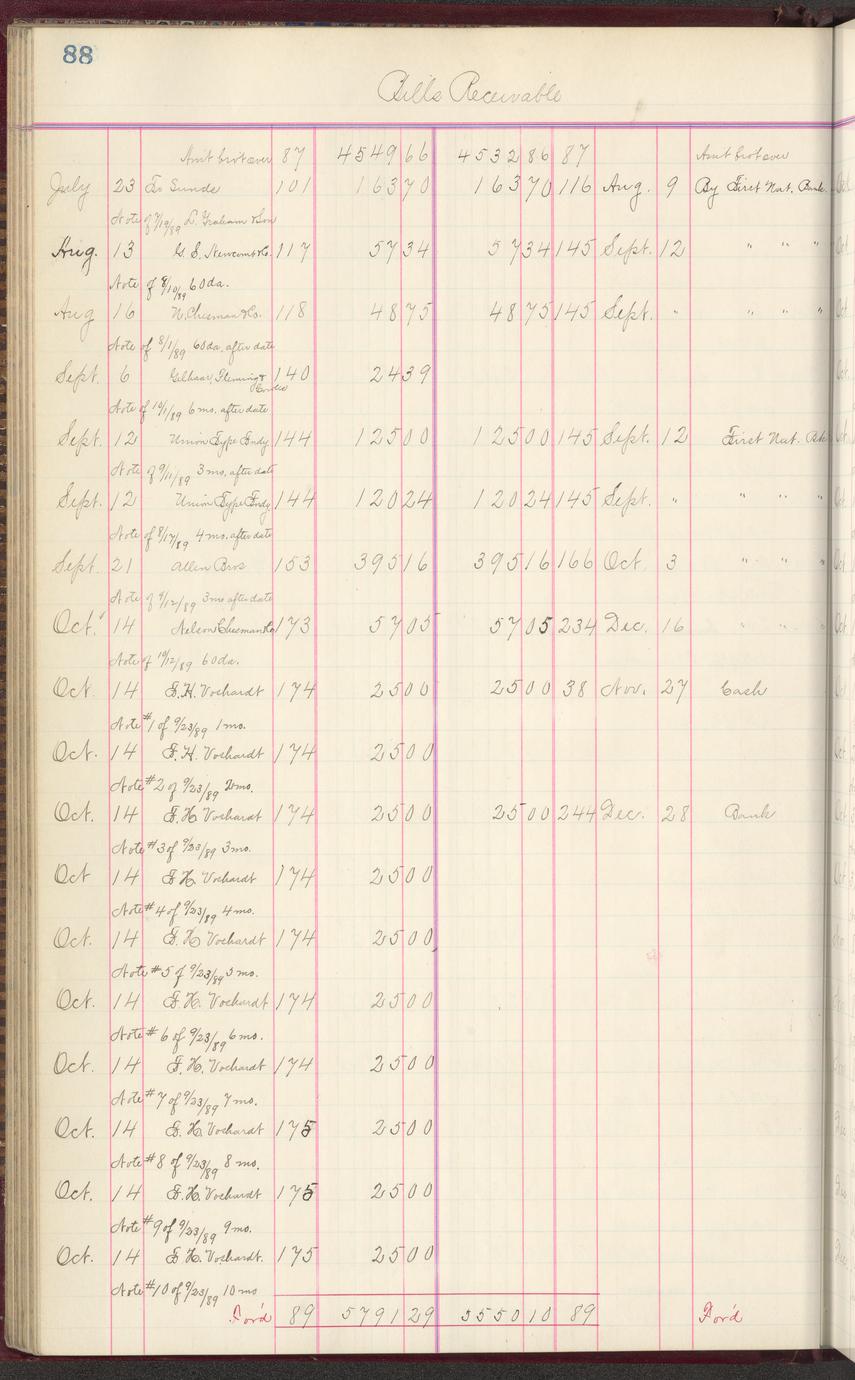 88
Bills Receivable
Amt brot over 87 4549 66 4532 86 87 Amt brot over
July 23 To Sunds 101 163 70 163 70 116 Aug. 9 By First Nat. Bank
Note of 7/19/89 L. Graham & Son
Aug. 13 G. S. Newcomb & Co. 117 57 34 57 34 145 Sept. 12 " " "
Note of 8/10/89 60 da.
Aug 16 N. Chesman & Co. 118 48 75 48 75 145 Sept. " " " "
Note of 8/1/89 60 da. after date
Sept. 6 Gelhaar, Fleming & 140 24 39
Note of 10/1/89 6 mo. after date
Sept. 12 Union Type Fndy. 144 125 00 125 00 145 Sept. 12 First Nat. Bk
Note of 9/11/89 3 mo. after date
Sept. 12 Union Type Fndy. 144 120 24 120 24 145 Sept. " " " "
Note of 8/17/89 4 mo. after date
Sept. 21 Allen Bros 153 395 16 395 16 166 Oct. 3 " " "
Note of 9/12/89 3 mo after date
Oct. 14 Nelson Chesman & Co 173 57 05 57 05 234 Dec. 16 " " "
Note of 10/12/89 60 da.
Oct. 14 F. H. Vochardt 174 25 00 25 00 38 Nov. 27 Cash
Note #1 of 9/23/89 1 mo.
Oct. 14 F. H. Vochardt 174 25 00
Note #2 of 9/23/89 2 mo.
Oct. 14 F. H. Vochardt 174 25 00 25 00 244 Dec. 28 Bank
Note #3 of 9/23/89 3 mo.
Oct 14 F. H. Vochardt 174 25 00
Note #4 of 9/23/89 4 mo.
Oct. 14 F. H. Vochardt 174 25 00
Note #5 of 9/23/89 5 mo.
Oct. 14 F. H. Vochardt 174 25 00
Note #6 of 9/23/89 6 mo.
Oct. 14 F. H. Vochardt 174 25 00
Note #7 of 9/23/89 7 mo.
Oct. 14 F. H. Vochardt 175 25 00
Note #8 of 9/23/89 8 mo.
Oct. 14 F. H. Vochardt 175 25 00
Note #9 of 9/23/89 9 mo.
Oct. 14 F. H. Vochardt. 175 25 00
Note #10 of 9/23/89 10 mo
For'd 89 5791 29 5550 10 89 For'd